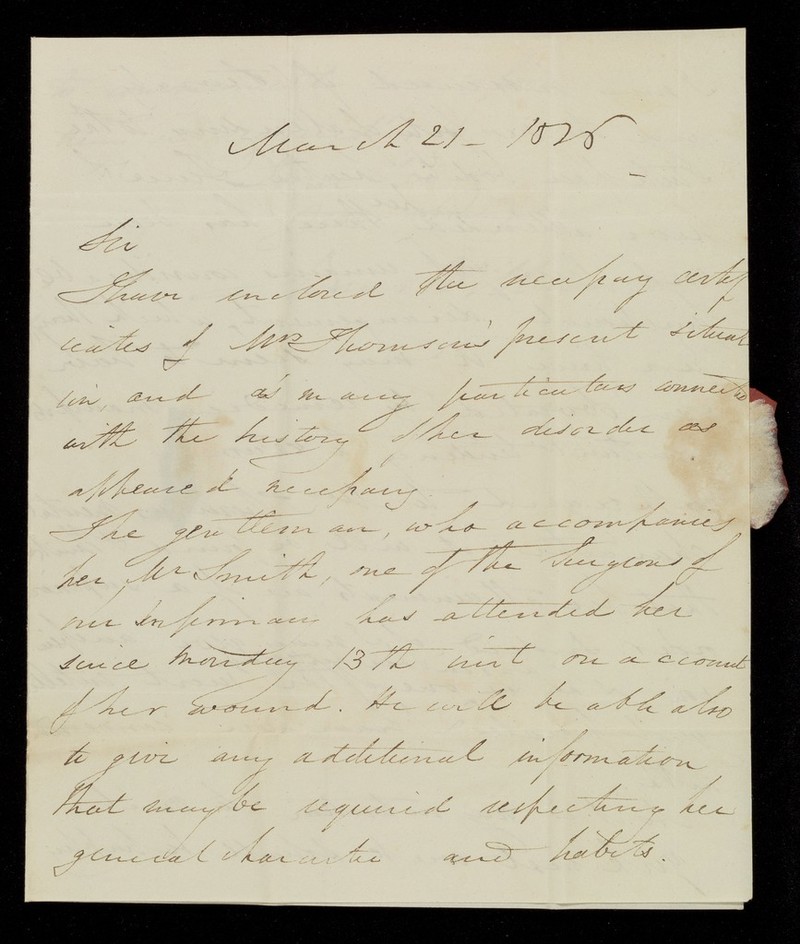 March 21 - 1826
Sir
I have enclosed the necessary certif
icates of Mrs Thomson's present situat
ion, and as many particulars connected
with the history of her disorder as
appeared necessary.
The gentleman, who accompanies
her Mr Smith, one of the Surgeons of
our Infirmary has attended her
since Monday 13th inst on account
of her wound. He will be able also
to give any additional information
that may be required respecting her
general character and habits.